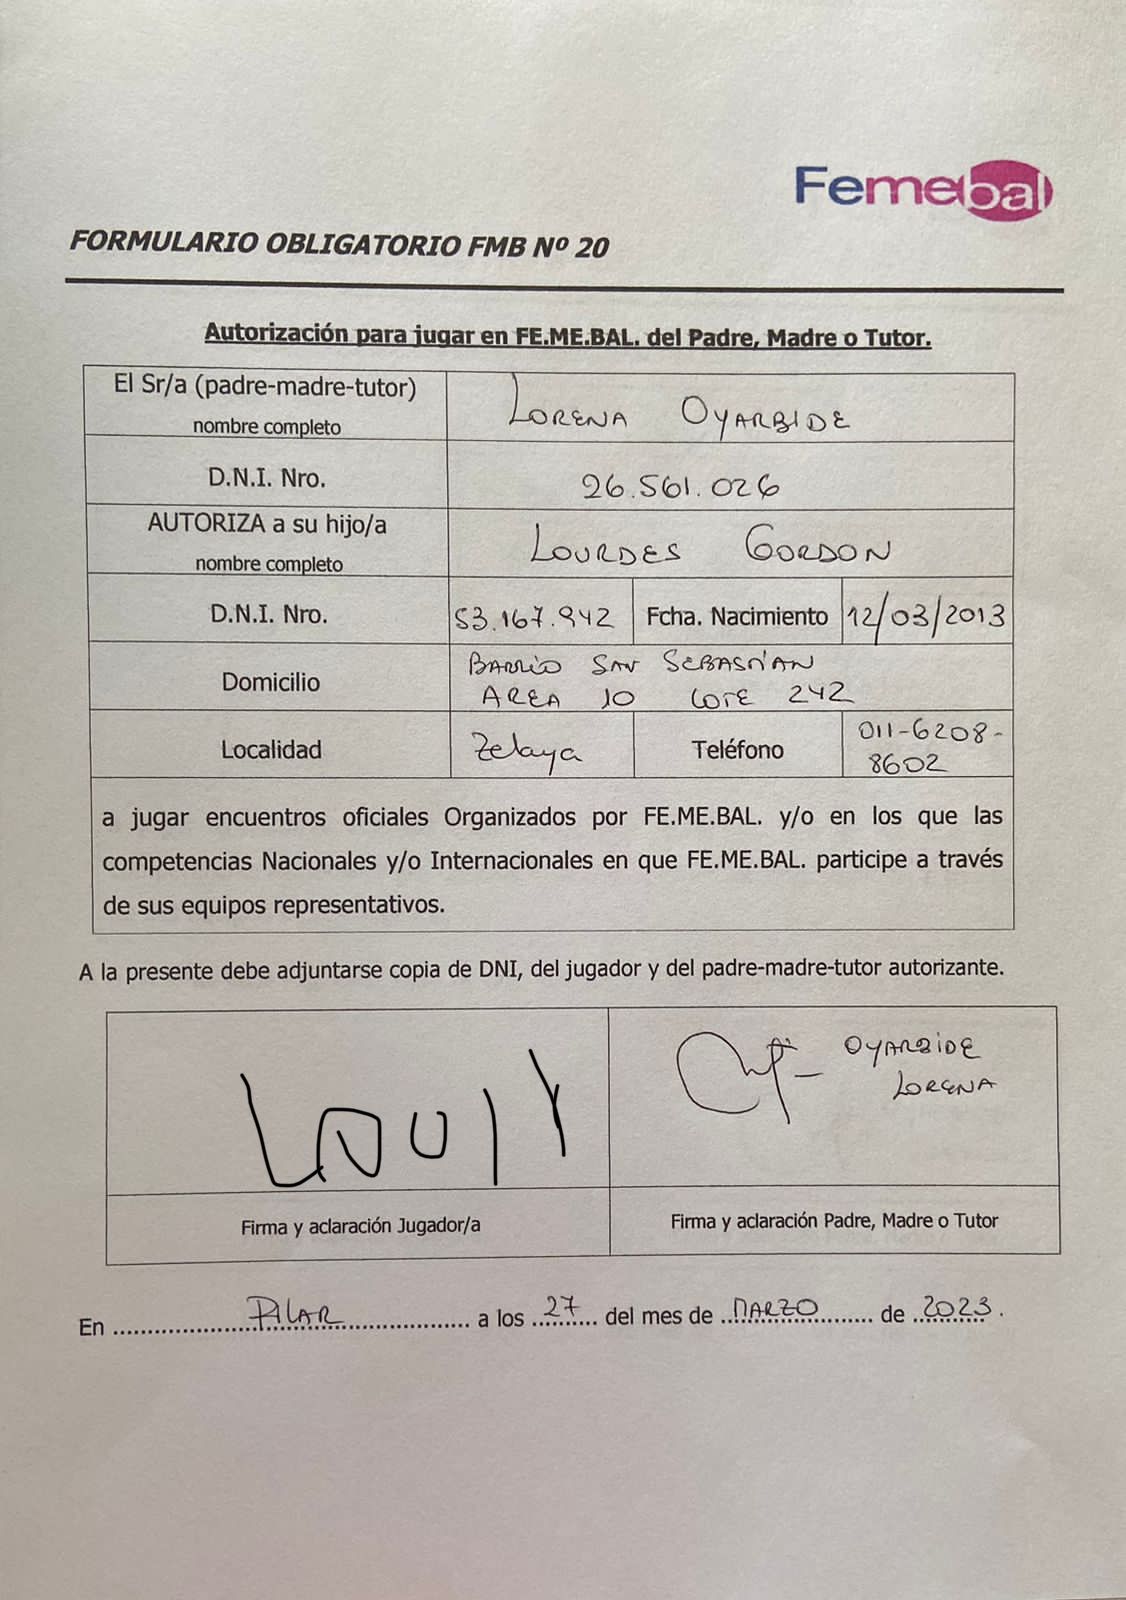 Femebal
FORMULARIO OBLIGATORIO FMB Nº 20
Autorización para jugar en FE.ME.BAL. del Padre, Madre o Tutor.
El Sr/a (padre-madre-tutor)
nombre completo
LORENA OYARBIDE
D.N.I. Nro.
26.561.026
AUTORIZA a su hijo/a
nombre completo
LOURDES GORDON
D.N.I. Nro.
53.167.942
Fcha. Nacimiento
12/03/2013
Domicilio
BARRIO SAN SEBASTIAN
AREA 10 LOTE 242
Localidad
Zelaya
Teléfono
011-6208-
8602
a jugar encuentros oficiales Organizados por FE.ME.BAL. y/o en los que las
competencias Nacionales y/o Internacionales en que FE.ME.BAL. participe a través
de sus equipos representativos.
A la presente debe adjuntarse copia de DNI, del jugador y del padre-madre-tutor autorizante.
OYARBIDE
LORENA
Firma y aclaración Jugador/a
Firma y aclaración Padre, Madre o Tutor
En PILAR a los 27 del mes de MARZO de 2023.